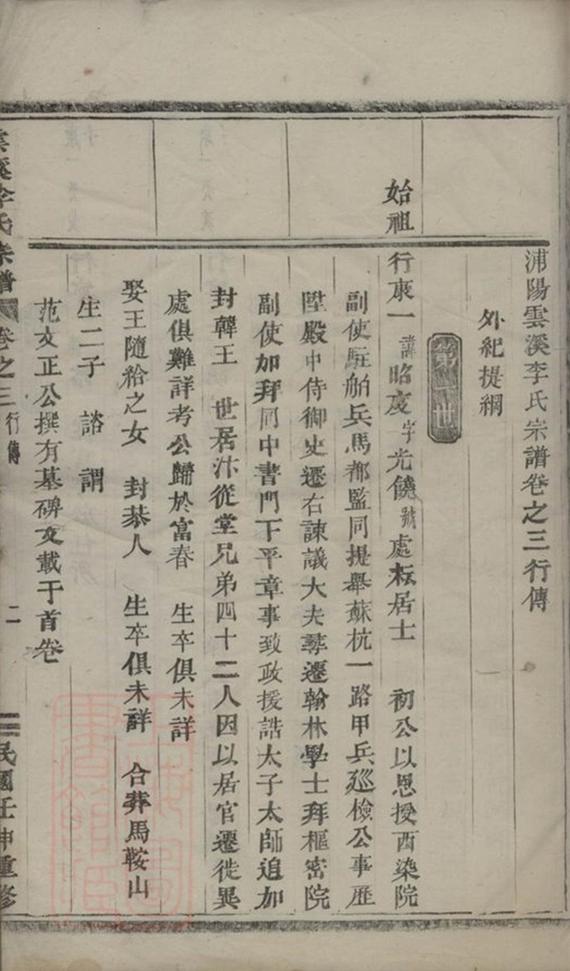 浦陽雲溪李氏宗譜卷之三行傳
外紀提綱
第一世
始祖
行康一諱昭度字光饒號處耘居士 初公以恩授西染院
副使駐舶兵馬都監同提舉蘇杭一路甲兵廵檢公事歷
陞殿中侍御史遷右諫議大夫尋遷翰林學士拜樞密院
副使加拜同中書門下平章事致政授誥太子太師追加
封韓王 世居汴從堂兄弟四十二人因以居官遷徙異
處俱難詳考公歸於富春 生卒俱未詳
娶王隨給之女 封恭人 生卒俱未詳 合葬馬鞍山
生二子 諮 謂
范文正公撰有墓碑文載于首卷
雲溪李氏宗譜 卷之三 行傳 二 民國壬申重修